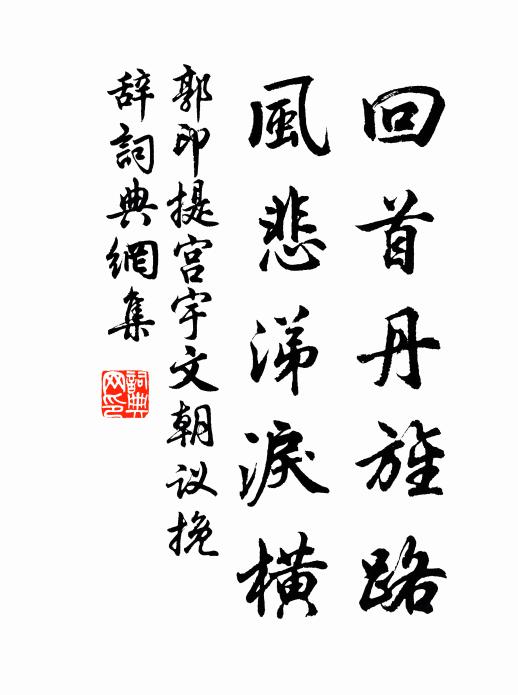 回首丹旌路
風悲涕淚橫
郭印提宫宇文朝议挽
辞詞典網集
詞典网印